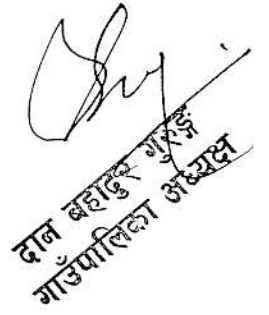 दान बहादुर गुरुङ
गाउँपालिका अध्यक्ष